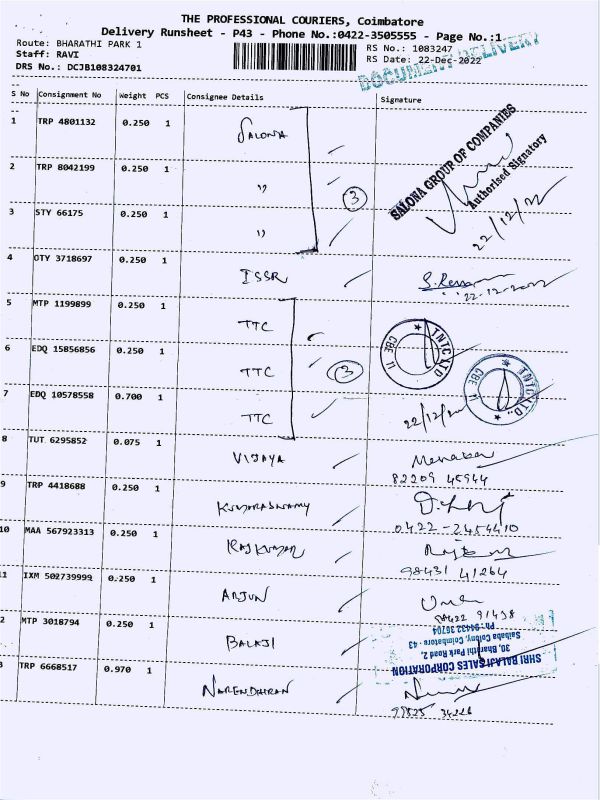 THE PROFESSIONAL COURIERS, Coimbatore
Delivery Runsheet - P43 - Phone No.:0422-3505555 - Page No.:1
Route: BHARATHI PARK 1
Staff: RAVI
DRS No.: DCJB108324701
RS No.: 1083247
RS Date: 22-Dec-2022
DOCUMENT DELIVERY
S No Consignment No Weight PCS Consignee Details Signature
1 TRP 4801132 0.250 1 SALONA
SALONA GROUP OF COMPANIES
Authorised Signatory
22/12/22
2 TRP 8042199 0.250 1 ,, 3
3 STY 66175 0.250 1 ,,
4 OTY 3718697 0.250 1 ISSR
22-12-2022
5 MTP 1199899 0.250 1 TTC
6 EDQ 15856856 0.250 1 TTC 3
TNTC LTD
CBE 11
TNTC LTD.,
CBE 11
7 EDQ 10578558 0.700 1 TTC
22/12/22
8 TUT 6295852 0.075 1 VIJAYA
82209 45944
9 TRP 4418688 0.250 1 KUMARASWAMY
0422-2454410
10 MAA 567923313 0.250 1 RAJKUMAR
98431 41264
11 IXM 502739999 0.250 1 ARJUN
91438
2 MTP 3018794 0.250 1 BALAJI
SHRI BALAJI SALES CORPORATION
30, Bharathi Park Road 2,
Saibaba Colony, Coimbatore - 43
Ph : 94432 36704
3 TRP 6668517 0.970 1 NARENDHIRAN
34226